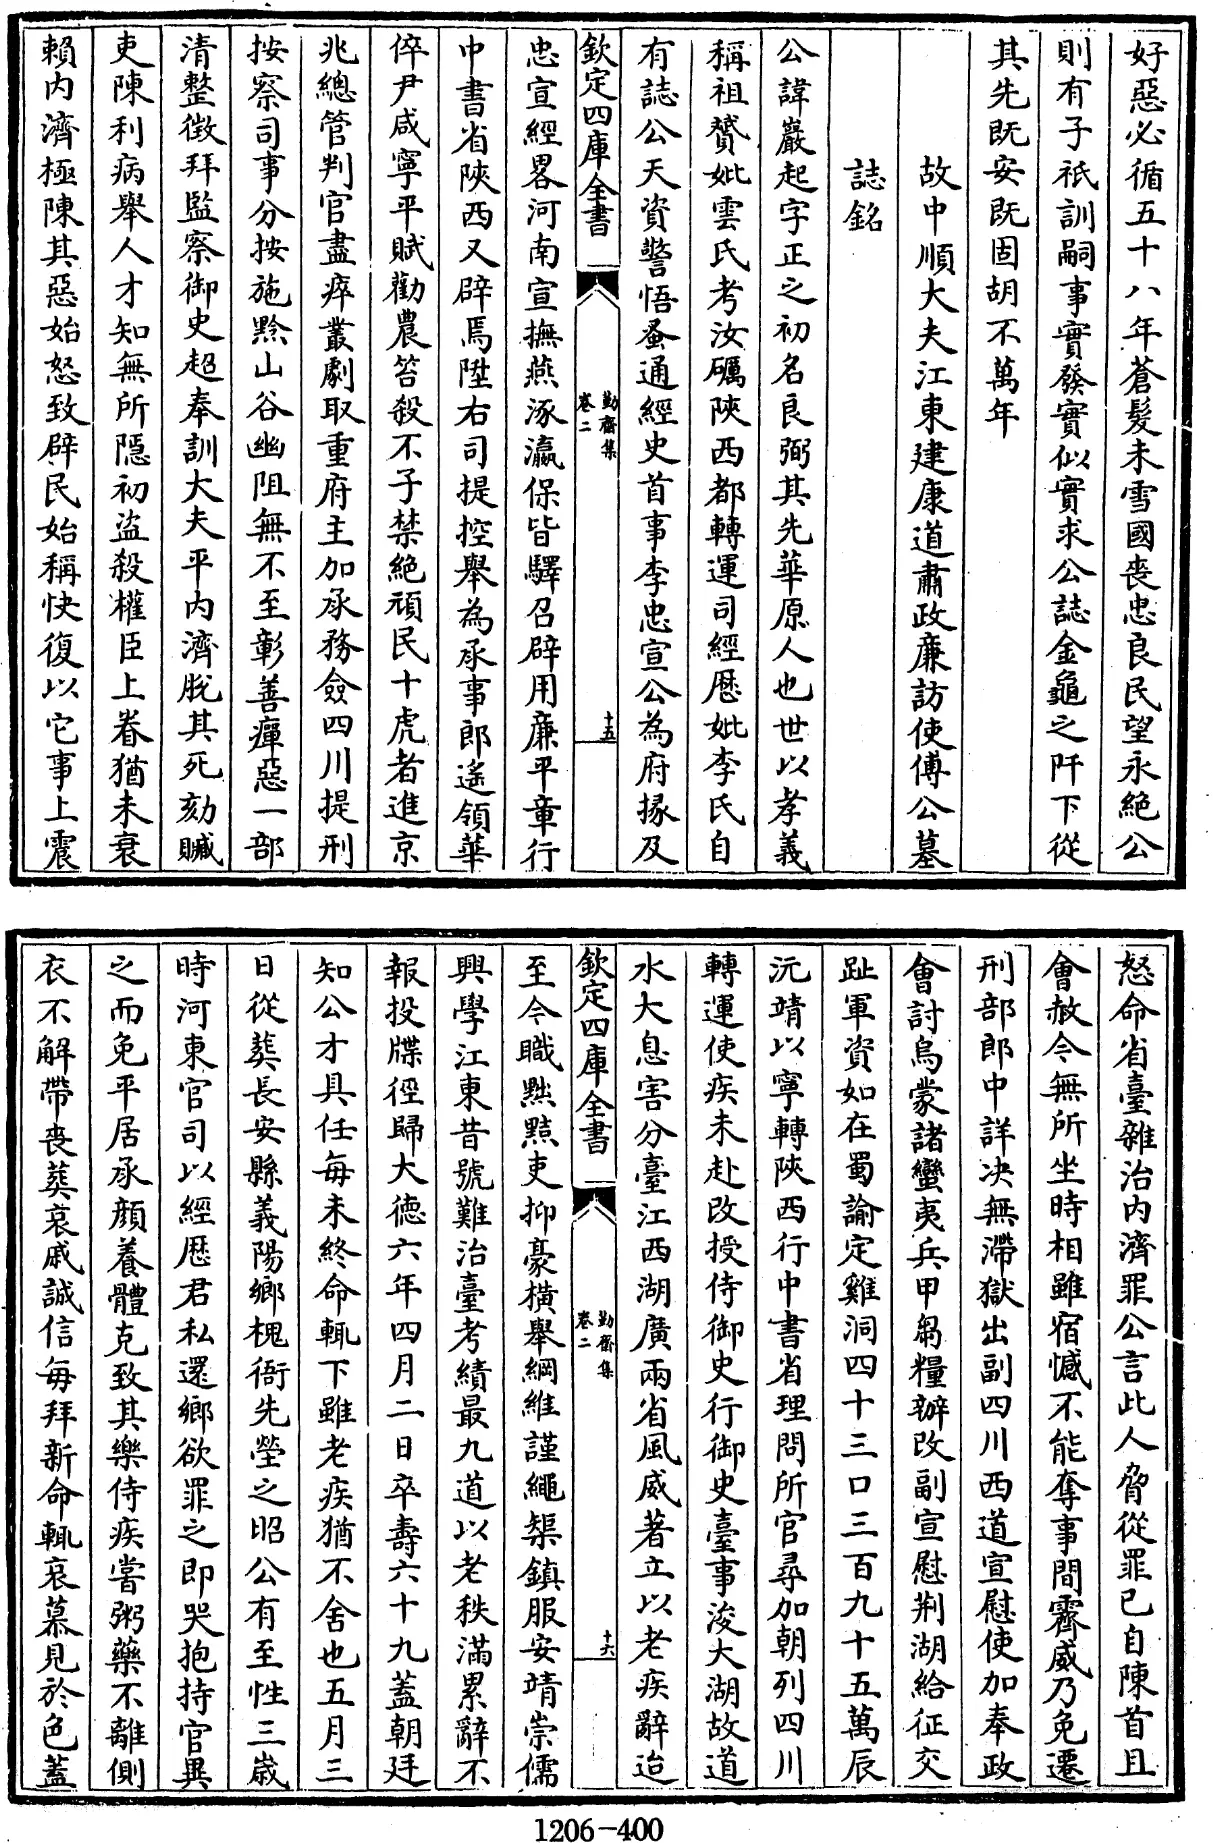 好惡必循五十八年蒼髮未雪國喪忠良民望永絶公
則有子祇訓嗣事實發實似實求公誌金龜之阡下從
其先既安既固胡不萬年
故中順大夫江東建康道肅政廉訪使傅公墓
誌銘
公諱巖起字正之初名良弼其先華原人也世以孝義
稱祖贇妣雲氏考汝礪陝西都轉運司經歴妣李氏自
有誌公天資警悟蚤通經史首事李忠宣公為府掾及
欽定四庫全書
勤齋集
卷二
十五
忠宣經畧河南宣撫燕涿瀛保皆驛召辟用廉平章行
中書省陝西又辟焉陞右司提控舉為承事郎遥領華
倅尹咸寧平賦勸農笞殺不子禁絶頑民十虎者進京
兆總管判官盡瘁叢劇取重府主加承務僉四川提刑
按察司事分按施黔山谷幽阻無不至彰善癉惡一部
清整徴拜監察御史超奉訓大夫平内濟脱其死劾贓
吏陳利病舉人才知無所隱初盗殺權臣上眷猶未衰
賴内濟極陳其惡始怒致辟民始稱快復以它事上震
怒命省臺雜治内濟罪公言此人脅從罪已自陳首且
會赦令無所坐時相雖宿憾不能奪事間霽威乃免遷
刑部郎中詳决無滯獄出副四川西道宣慰使加奉政
會討烏蒙諸蠻夷兵甲芻糧辦改副宣慰荆湖給征交
趾軍資如在蜀諭定雞洞四十三口三百九十五萬辰
沅靖以寧轉陝西行中書省理問所官尋加朝列四川
轉運使疾未赴改授侍御史行御史臺事浚大湖故道
水大息害分臺江西湖廣兩省風威著立以老疾辭迨
欽定四庫全書
勤齋集
卷二
十六
至今職黜黠吏抑豪横舉綱維謹繩榘鎮服安靖崇儒
興學江東昔號難治臺考績最九道以老秩滿累辭不
報投牒徑歸大德六年四月二日卒壽六十九蓋朝廷
知公才具任每未終命輒下雖老疾猶不舍也五月三
日從葬長安縣義陽鄉槐衙先塋之昭公有至性三歳
時河東官司以經歴君私還鄉欲罪之即哭抱持官異
之而免平居承顔養體克致其樂侍疾嘗粥藥不離側
衣不解帶喪葬哀戚誠信毎拜新命輒哀慕見於色蓋
1206-400